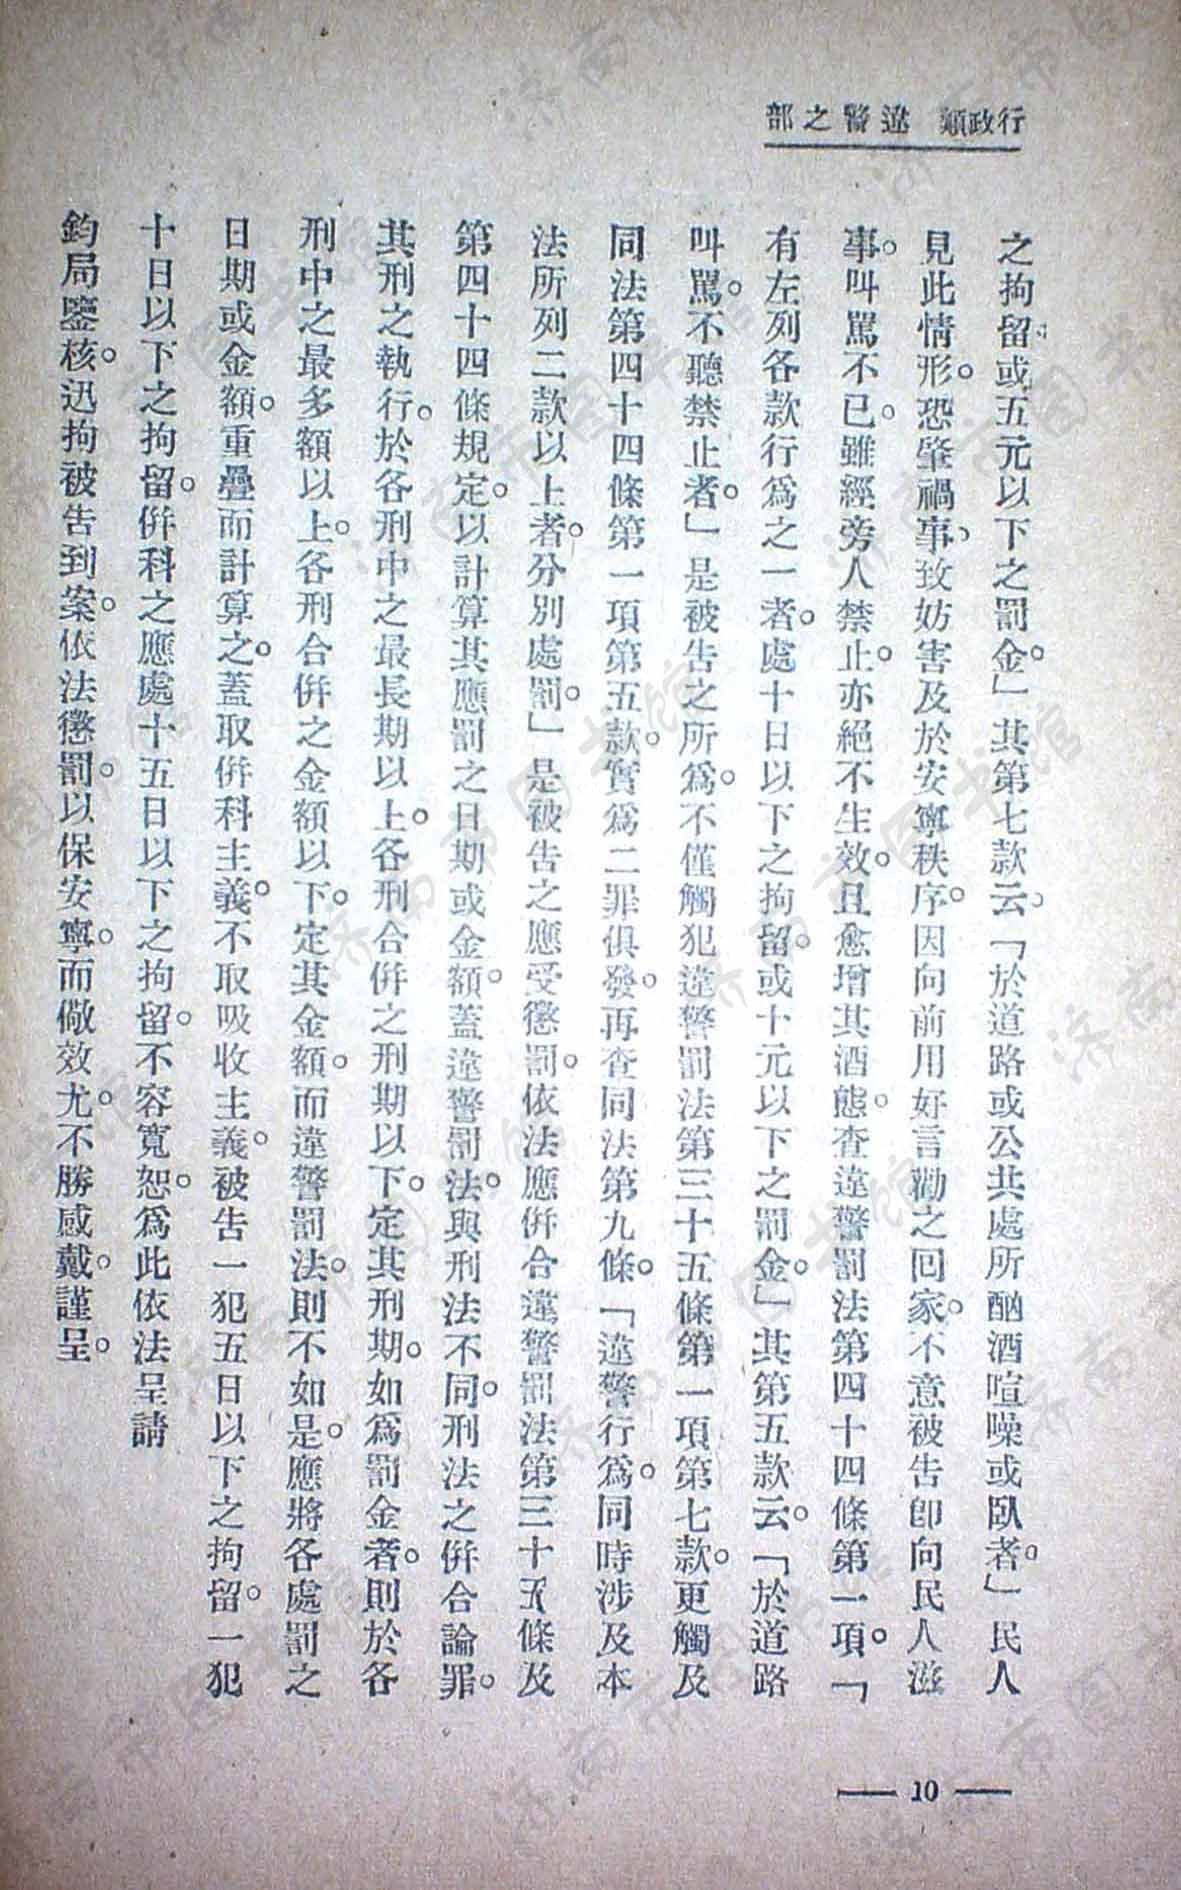 行政類　違警之部
之拘留。或五元以下之罰金。」其第七款云。「於道路或公共處所酗酒喧噪或臥者。」民人
見此情形。恐肇禍事。致妨害及於安寧秩序。因向前用好言勸之回家。不意被告卽向民人滋
事。叫罵不已。雖經旁人禁止。亦絕不生效。且愈增其酒態。查違警罰法第四十四條第一項。「
有左列各款行爲之一者。處十日以下之拘留。或十元以下之罰金。」其第五款云。「於道路
叫罵。不聽禁止者。」是被告之所爲。不僅觸犯違警罰法第三十五條第一項第七款。更觸及
同法第四十四條第一項第五款。實爲二罪俱發。再查同法第九條。「違警行爲。同時涉及本
法所列二款以上者。分別處罰。」是被告之應受懲罰。依法應倂合違警罰法第三十五條及
第四十四條規定。以計算其應罰之日期或金額。蓋違警罰法。與刑法不同。刑法之倂合論罪。
其刑之執行。於各刑中之最長期以上。各刑合倂之刑期以下。定其刑期。如爲罰金者。則於各
刑中之最多額以上。各刑合倂之金額以下。定其金額。而違警罰法。則不如是。應將各處罰之
日期或金額。重疊而計算之。蓋取倂科主義。不取吸收主義。被告一犯五日以下之拘留。一犯
十日以下之拘留。倂科之應處十五日以下之拘留。不容寬恕。爲此依法呈請
鈞局鑒核。迅拘被告到案。依法懲罰。以保安寧。而儆效尤。不勝感戴。謹呈。
— 10 —
济南市图书馆